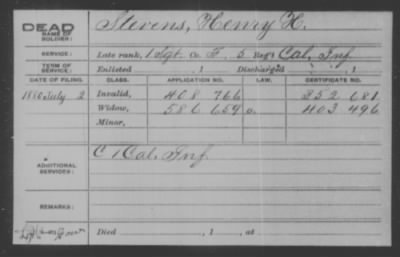 DEAD Stevens, Henry H.
NAME OF SOLDIER:
SERVICE: Late rank, 1 Sgt Co. F, 5 Reg't Cal. Inf
TERM OF SERVICE: Enlisted , 1 Discharged , 1
DATE OF FILING. CLASS. APPLICATION NO. LAW. CERTIFICATE NO.
1880 July 2 Invalid, 408 766 352 681
Widow, 586 659 403 496
Minor,
C 1 Cal. Inf
ADDITIONAL SERVICES:
REMARKS:
Died , 1 , at